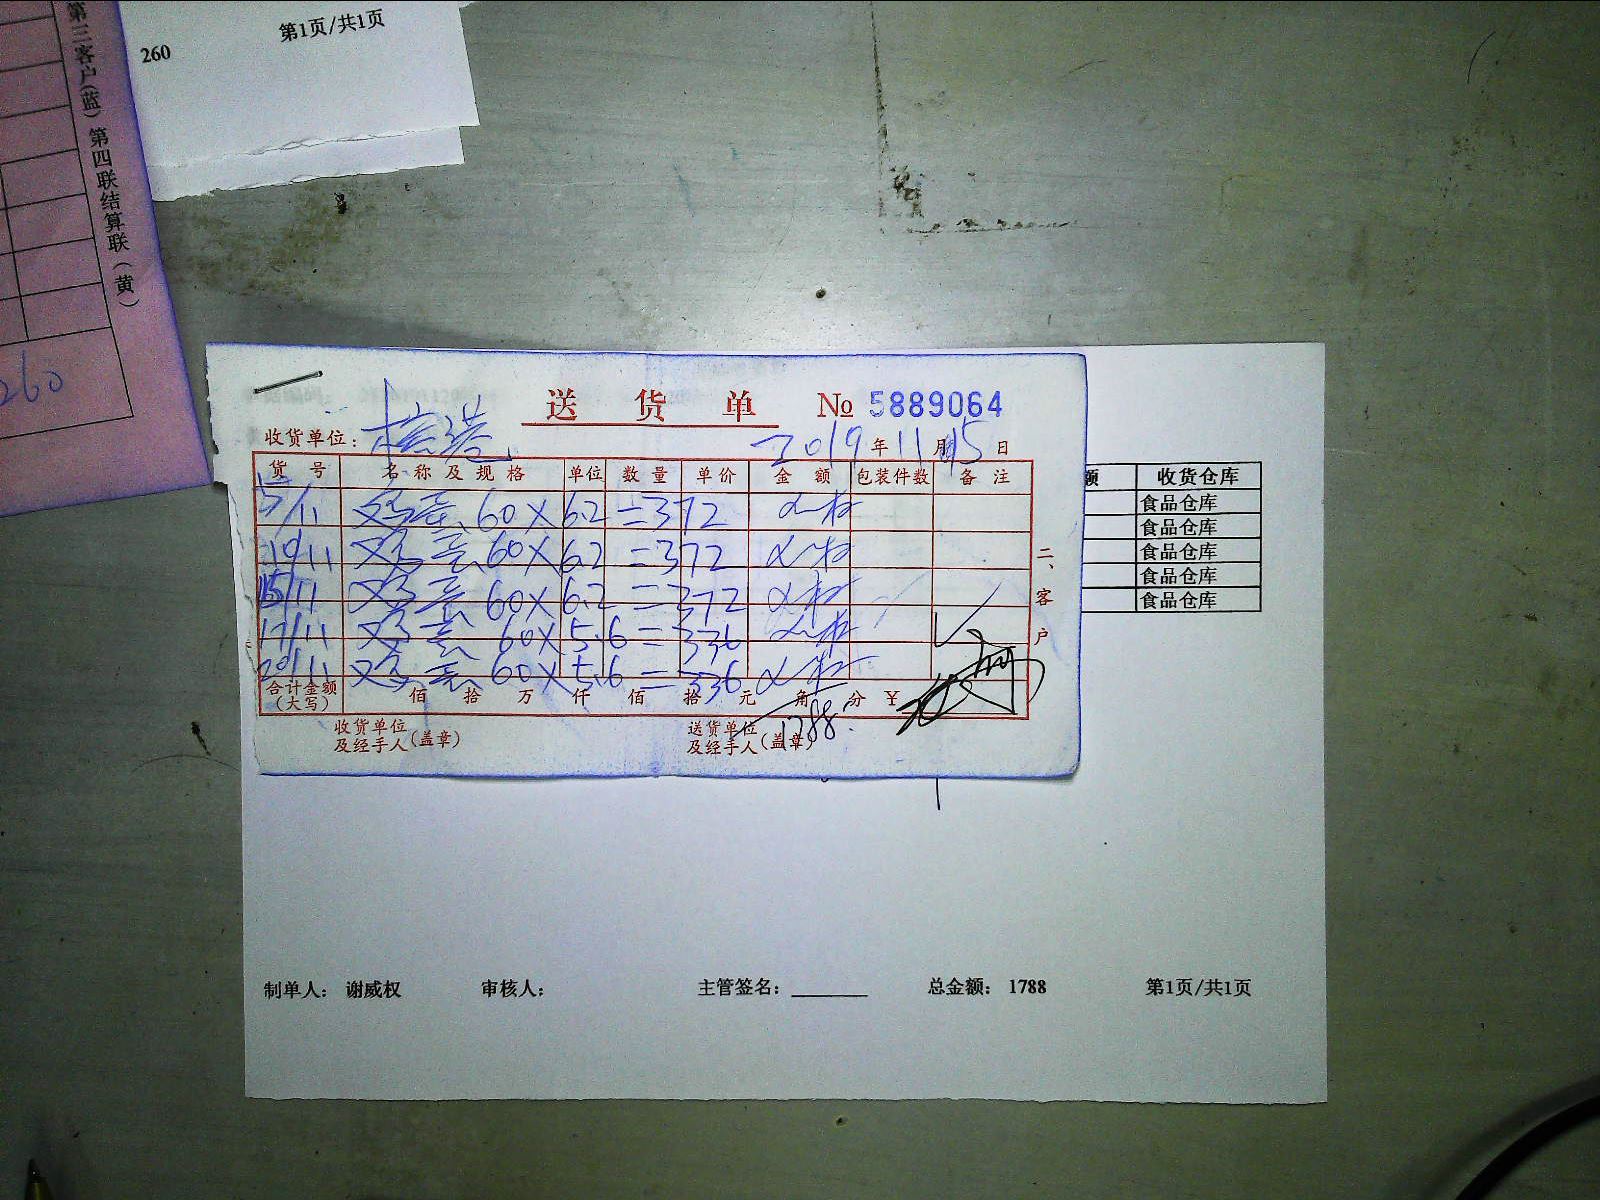 第三客户(蓝) 第四联结算联(黄)
260
260
第1页/共1页
送货单 № 5889064
收货单位:
2019年11月15日
货号 名称及规格 单位 数量 单价 金额 包装件数 备注
5/11 鸡蛋 60×6.2=372
10/11 鸡蛋 60×6.2=372
15/11 鸡蛋 60×6.2=372
17/11 鸡蛋 60×5.6=336
20/11 鸡蛋 60×5.6=336
合计金额(大写) 佰 拾 万 仟 佰 拾 元 角 分 ¥
1788
收货单位及经手人(盖章) 送货单位及经手人(盖章)
二、客户
额 收货仓库
食品仓库
食品仓库
食品仓库
食品仓库
食品仓库
制单人: 谢威权 审核人: 主管签名: 总金额: 1788 第1页/共1页